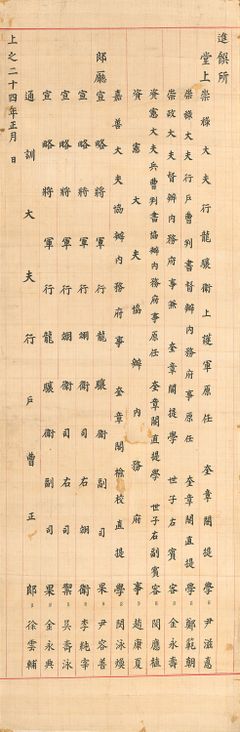 進饌所
堂上
崇祿大夫行龍驤衛上護軍原任 奎章閣提學臣尹滋悳
崇祿大夫行戶曹判書督辦內務府事原任 奎章閣直提學臣鄭範朝
崇政大夫督辦內務府事兼 奎章閣提學 世子右賓客臣金永壽
資憲大夫兵曹判書協辦內務府事原任 奎章閣直提學 世子右副賓客臣閔應植
資憲大夫協辦內務府事臣趙康夏
嘉善大夫協辦內務府事 奎章閣檢校直提學臣閔泳煥
郎廳
宣略將軍行龍驤衛副司果臣尹容善
宣略將軍行翊衛司右翊衛臣李純宰
宣略將軍行翊衛司右司禦臣吳壽泳
宣略將軍行龍驤衛副司果臣金永典
通訓大夫行戶曹正郎臣徐雲輔
上之二十四年正月 日